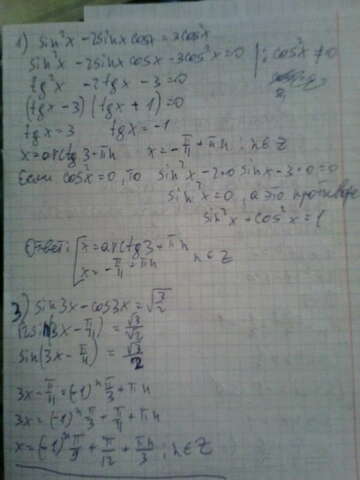 1) sin²x - 2sinx cosx = 3cos²x
sin²x - 2sinx cosx - 3cos²x = 0 | : cos²x ≠ 0
tg²x - 2tgx - 3 = 0
(tgx - 3)(tgx + 1) = 0
tgx = 3 tgx = -1
x = arctg3 + πn x = -π/4 + πn ; n∈Z
Если cos²x = 0, то sin²x - 2·0 sinx - 3·0 = 0
sin²x = 0, а это
sin²x + cos²x = 1
Ответ: [x = arctg3 + πn
x = -π/4 + πn n∈Z
3) sin3x - cos3x = √3/2
√2sin(3x - π/4) = √3/√2
sin(3x - π/4) = √3/2
3x - π/4 = (-1)ⁿ π/3 + πn
3x = (-1)ⁿ π/3 + π/4 + πn
x = (-1)ⁿ π/9 + π/12 + πn/3 ; n∈Z